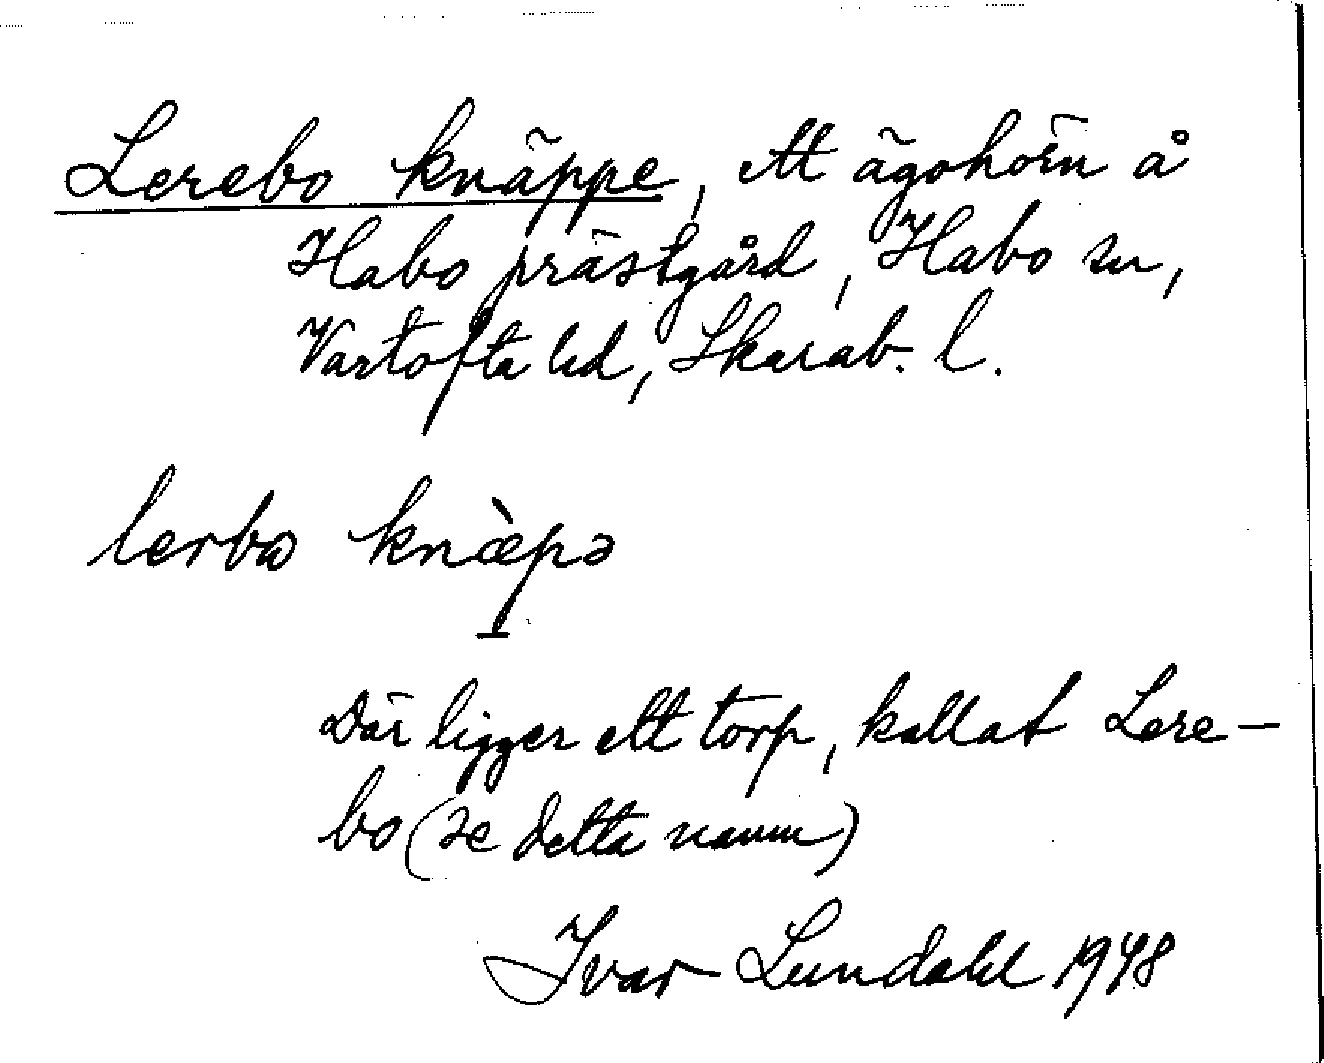 Lerebo knäppe, ett ägohörn å
Habo prästgård, Habo sn,
Vartofta hd, Skarab. l.
lerbω knæ̀pə
Där ligger ett torp, kallat Lere-
bo (se detta namn)
Ivar Lundahl 1948